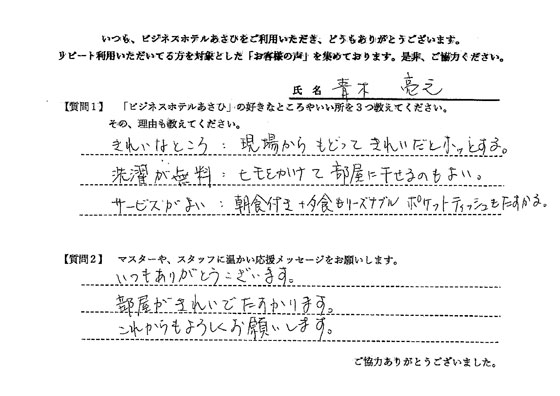 いつも、ビジネスホテルあさひをご利用いただき、どうもありがとうございます。
リピート利用いただいてる方を対象とした「お客様の声」を集めております。是非、ご協力ください。
氏 名 青木 亮元
【質問1】 「ビジネスホテルあさひ」の好きなところやいい所を3つ教えてください。
その、理由も教えてください。
きれいなところ : 現場からもどって きれいだとホッとする。
洗濯が無料 : ヒモをかけて部屋に干せるのもよい。
サービスがよい : 朝食付き+夕食もリーズナブル ポケットティッシュもたすかる。
【質問2】 マスターや、スタッフに温かい応援メッセージをお願いします。
いつもありがとうございます。
部屋がきれいでたすかります。
これからもよろしくお願いします。
ご協力ありがとうございました。